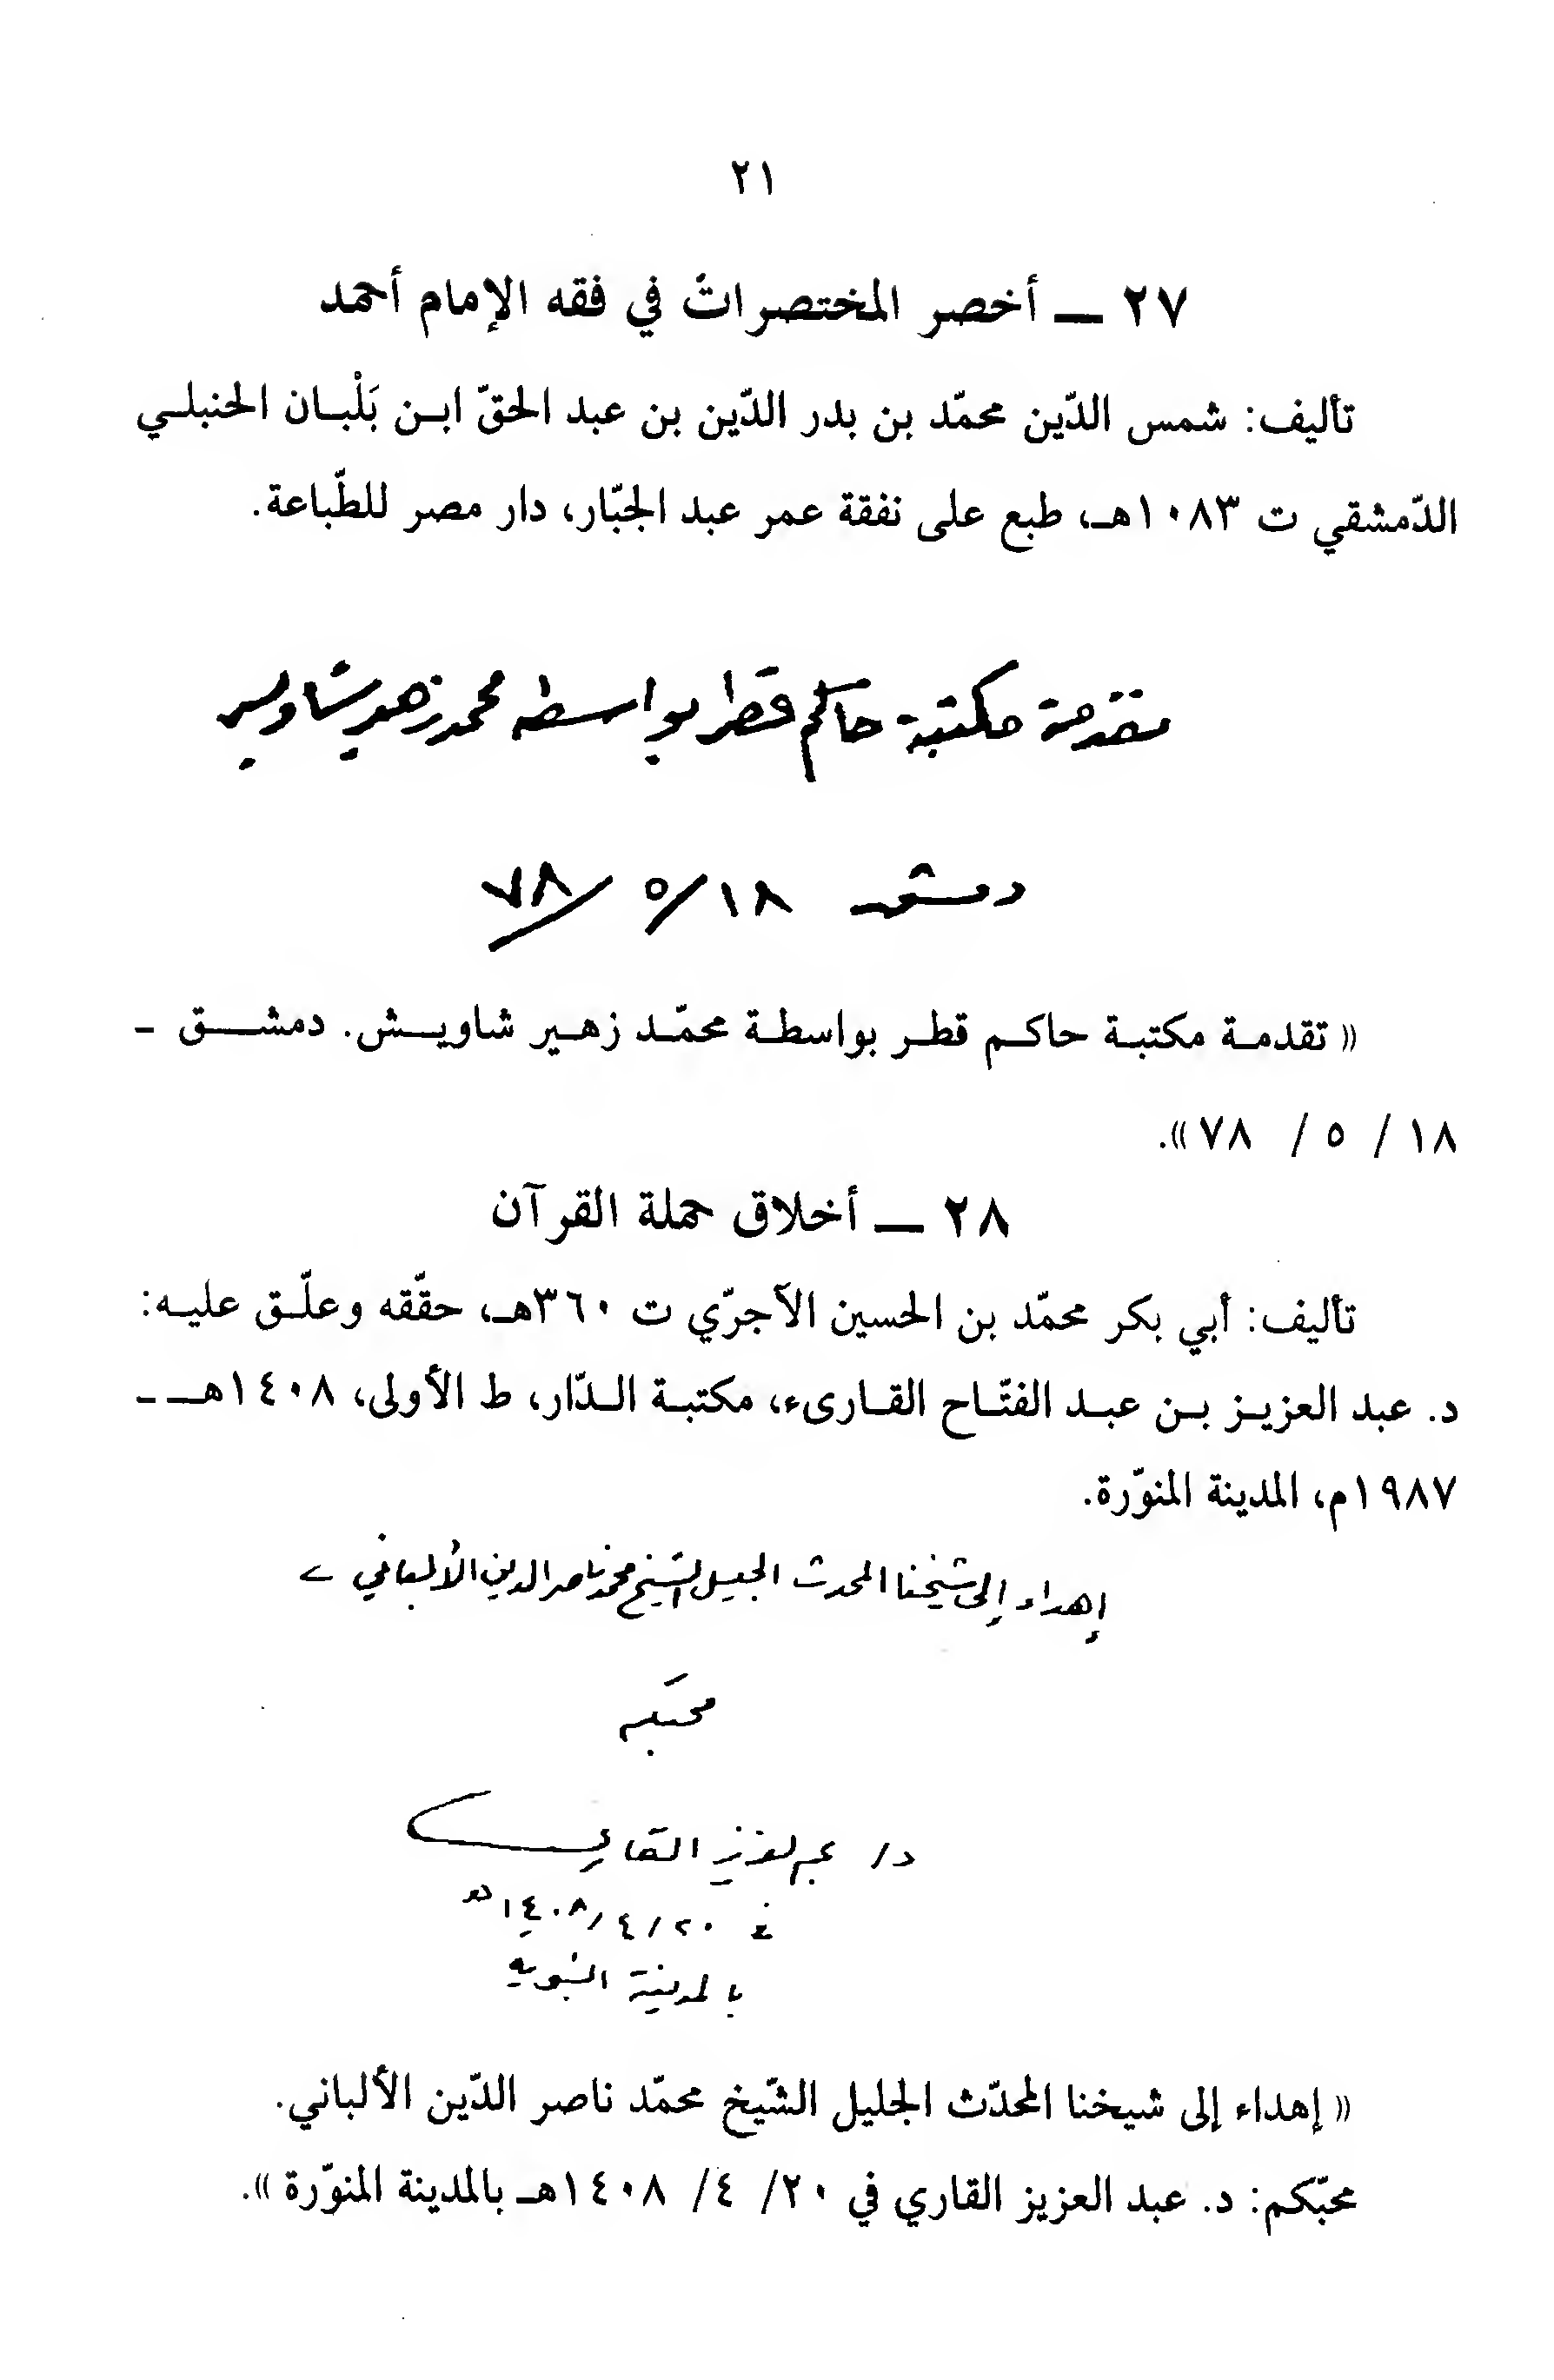 ٢١
٢٧ ــ أخصر المختصرات في فقه الإمام أحمد
تأليف: شمس الدّين محمّد بن بدر الدّين بن عبد الحقّ ابن بَلْبان الحنبلي
الدّمشقي ت ١٠٨٣هـ، طبع على نفقة عمر عبد الجبّار، دار مصر للطّباعة.
تقدمة مكتبة حاكم قطر بواسطة محمد زهير شاويش
دمشق ١٨/ ٥/ ٧٨
« تقدمة مكتبة حاكم قطر بواسطة محمّد زهير شاويش. دمشق -
١٨ / ٥ / ٧٨ ».
٢٨ ــ أخلاق حملة القرآن
تأليف: أبي بكر محمّد بن الحسين الآجرّي ت ٣٦٠هـ، حقّقه وعلّق عليه:
د. عبد العزيز بن عبد الفتّاح القارىء، مكتبة الدّار، ط الأولى، ١٤٠٨هـ -
١٩٨٧م، المدينة المنوّرة.
إهداء إلى شيخنا المحدث الجليل الشيخ محمد ناصر الدين الألباني
محبكم
د/ عبد العزيز القاري
في ٢٠/ ٤/ ١٤٠٨هـ
بالمدينة النبوية
« إهداء إلى شيخنا المحدّث الجليل الشّيخ محمّد ناصر الدّين الألباني.
محبّكم: د. عبد العزيز القاري في ٢٠/ ٤/ ١٤٠٨هـ بالمدينة المنوّرة ».